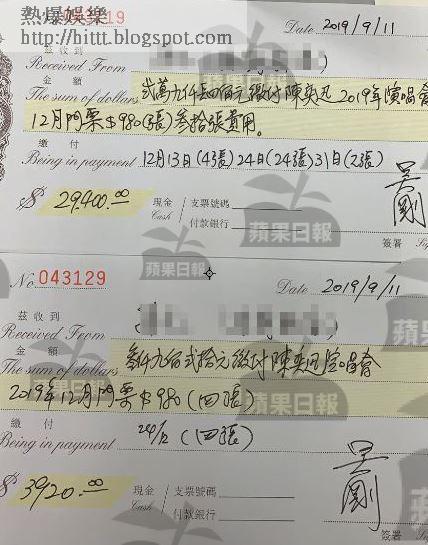 熱爆娛樂
http://hittt.blogspot.com
3119
Date 2019/9/11
茲收到
Received From
金額
The sum of dollars 弍萬九仟四佰元繳付陳奕迅2019年演唱會
12月門票$980(張)叁拾張費用。
繳付
Being in payment 12月13日(4張)24日(24張)31日(2張)
$ 29400.00
現金 支票號碼
Cash 付款銀行
吴剛
簽署
蘋果日報
蘋果日報
No 043129
Date 2019/9/11
茲收到
Received From
金額
The sum of dollars 叁仟九佰弍拾元繳付陳奕迅演唱會
2019年12月門票$980(四張)
蘋果日報
繳付
Being in payment 24/12 (四張)
$ 3920.00
現金 支票號碼
Cash 付款銀行
吴剛
簽署